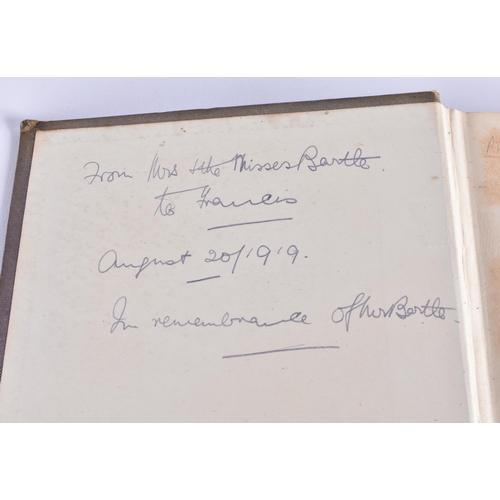 From Mrs & the Misses Bartle.
to Francis
August 20/1919.
In remembrance of Mr Bartle.